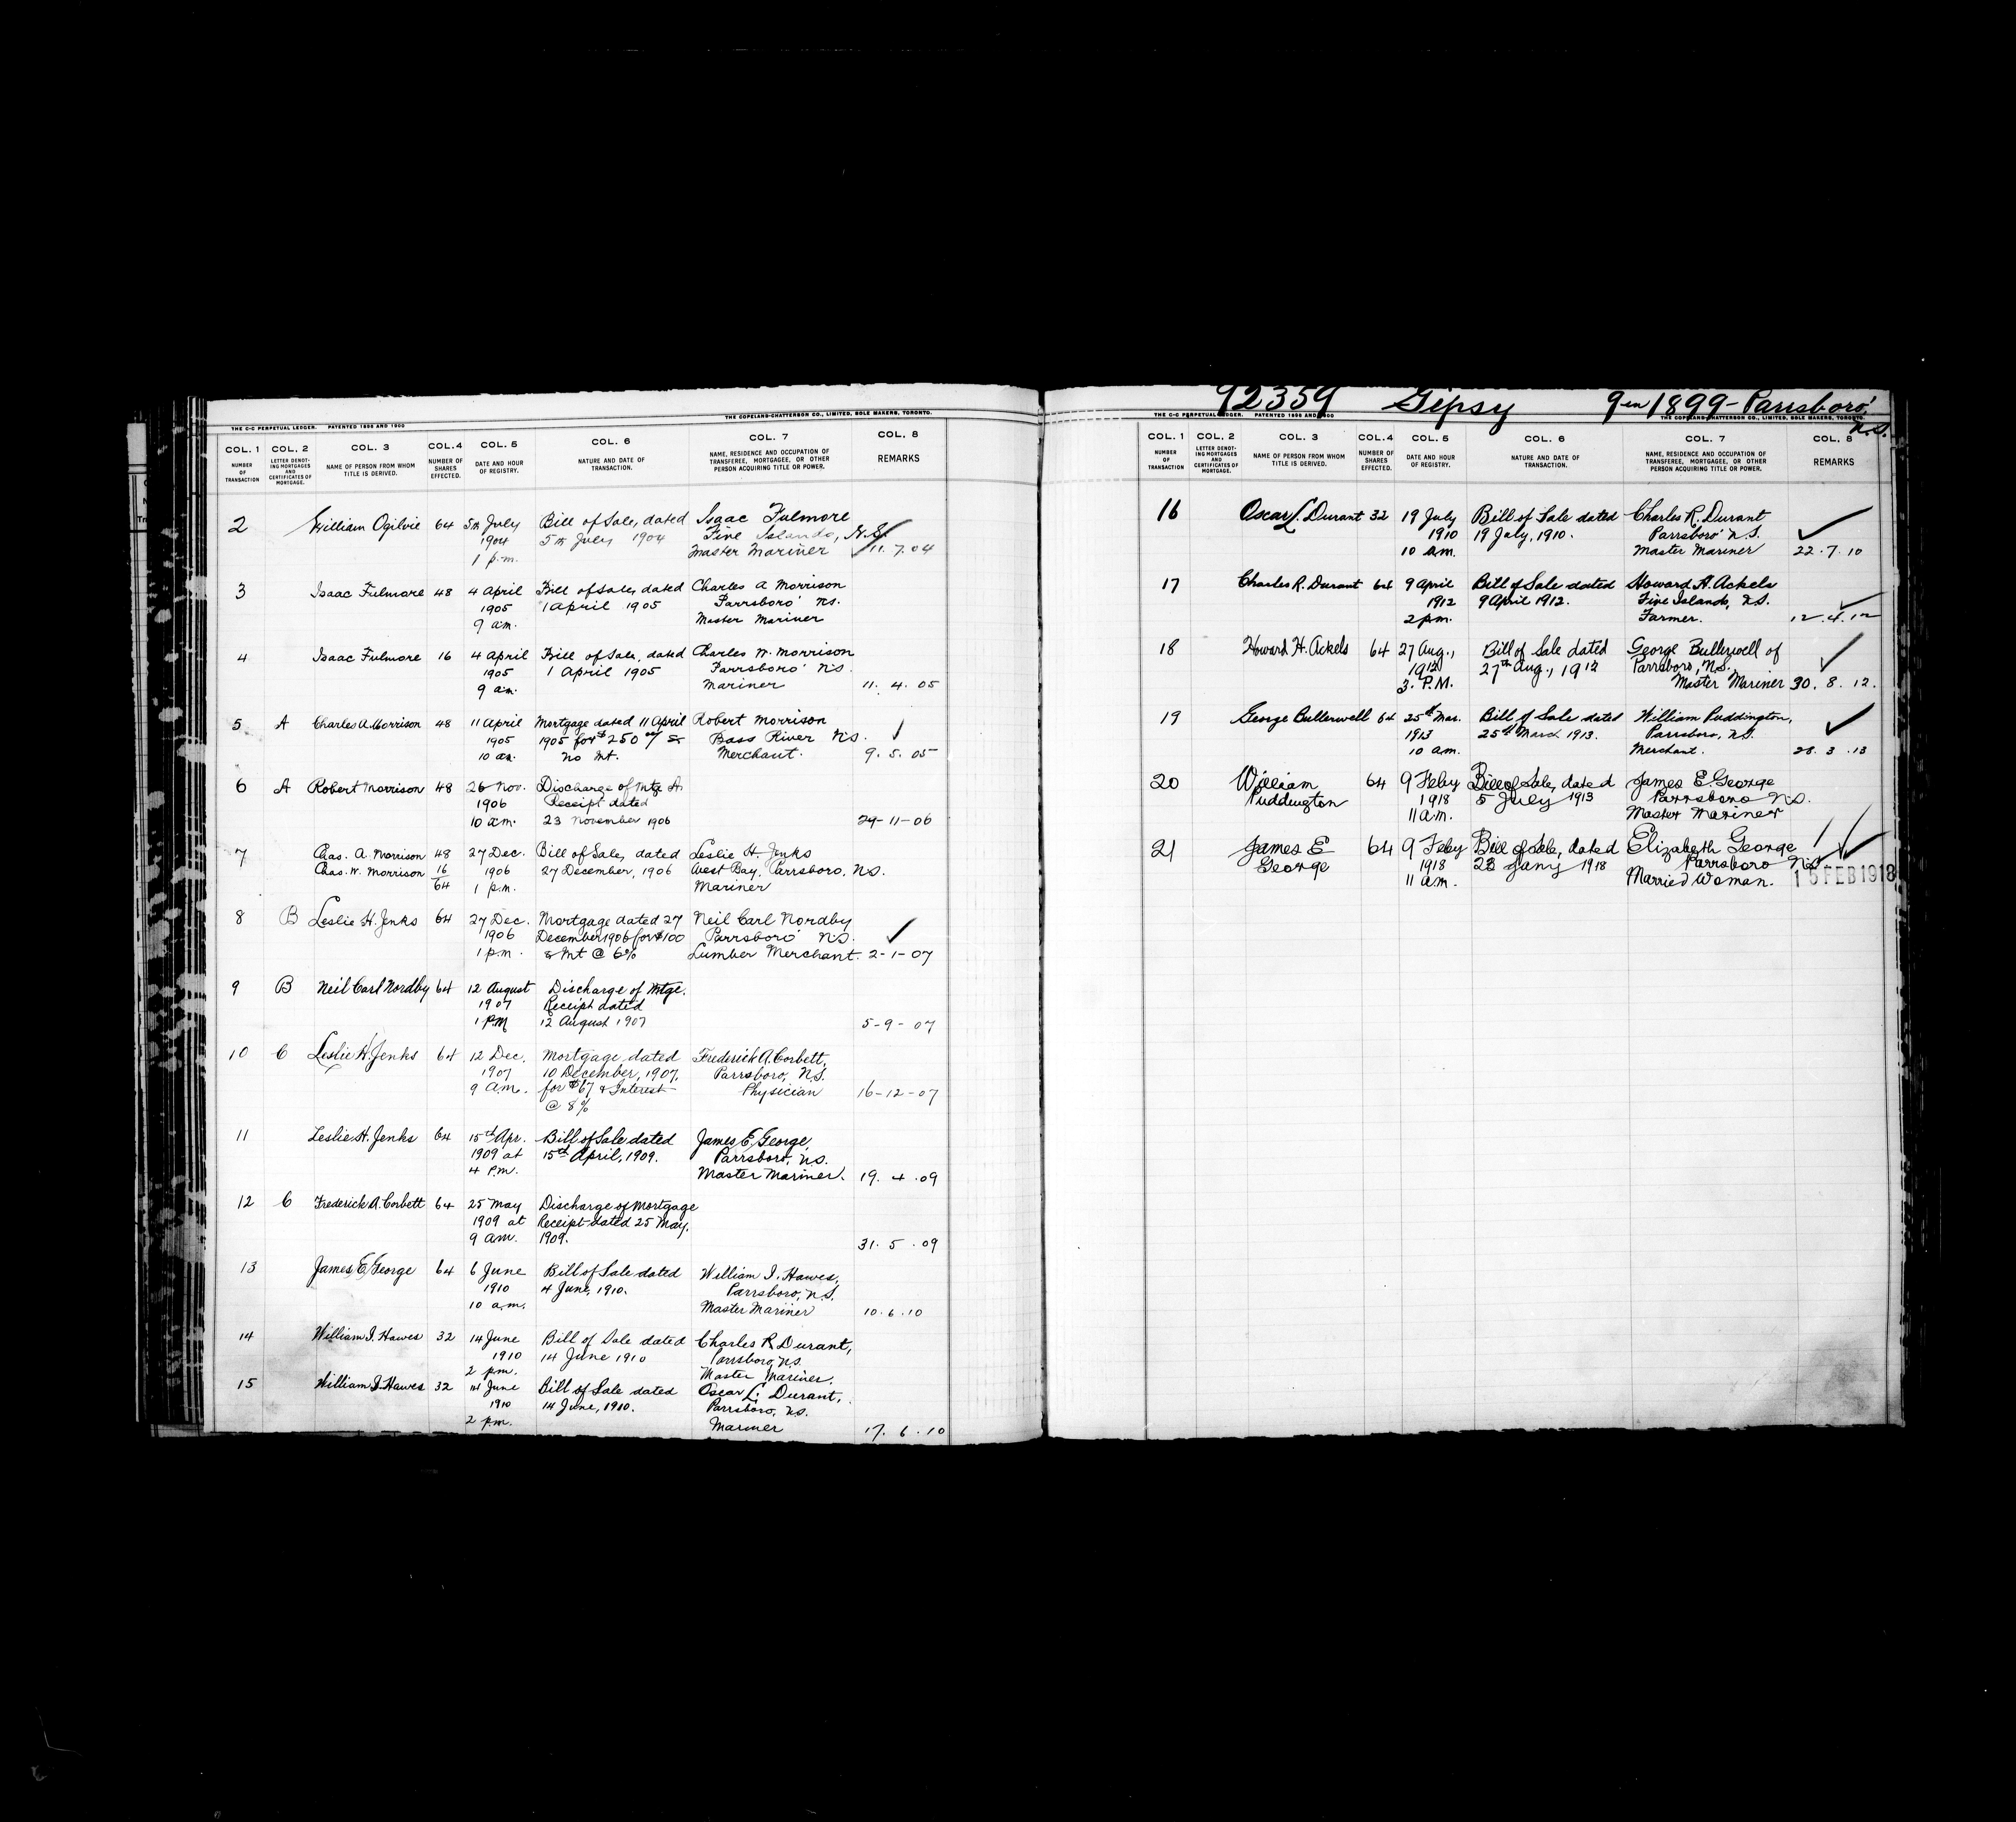 THE C-C PERPETUAL LEDGER. PATENTED 1896 AND 1900
THE COPELAND-CHATTERSON CO., LIMITED, SOLE MAKERS, TORONTO.
COL. 1 COL. 2 COL. 3 COL. 4 COL. 5 COL. 6 COL. 7 COL. 8
NUMBER OF TRANSACTION
LETTER DENOTING MORTGAGES AND CERTIFICATES OF MORTGAGE.
NAME OF PERSON FROM WHOM TITLE IS DERIVED.
NUMBER OF SHARES EFFECTED.
DATE AND HOUR OF REGISTRY.
NATURE AND DATE OF TRANSACTION.
NAME, RESIDENCE AND OCCUPATION OF TRANSFEREE, MORTGAGEE, OR OTHER PERSON ACQUIRING TITLE OR POWER.
REMARKS
2 William Ogilvie 64 5th July Bill of Sale, dated Isaac Fulmore
1904 5th July 1904 Five Islands, N.S.
1 p.m. Master Mariner 11.7.04
3 Isaac Fulmore 48 4 April Bill of Sale, dated Charles A Morrison
1905 1 April 1905 Parrsboro' N.S.
9 a.m. Master Mariner
4 Isaac Fulmore 16 4 April Bill of Sale, dated Charles W. Morrison
1905 1 April 1905 Parrsboro' N.S.
9 a.m. Mariner 11. 4. 05
5 A Charles A. Morrison 48 11 April Mortgage dated 11 April Robert Morrison
1905 1905 for $250 Bass River N.S.
10 a.m. no Int. Merchant. 9. 5. 05
6 A Robert Morrison 48 26 Nov. Discharge of Mtge A.
1906 Receipt dated
10 a.m. 23 November 1906 29-11-06
7 Chas. A. Morrison 48 27 Dec. Bill of Sale, dated Leslie H. Jenks
Chas. W. Morrison 16 1906 27 December, 1906 West Bay, Parrsboro, N.S.
64 1 p.m. Mariner
8 B Leslie H. Jenks 64 27 Dec. Mortgage dated 27 Neil Carl Nordby
1906 December 1906 for $100 Parrsboro' N.S.
1 p.m. & Int @ 6% Lumber Merchant. 2-1-07
9 B Neil Carl Nordby 64 12 August Discharge of Mtge.
1907 Receipt dated
1 P.M 12 August 1907 5-9-07
10 C Leslie H. Jenks 64 12 Dec. Mortgage dated Frederick A. Corbett,
1907 10 December, 1907. Parrsboro, N.S.
9 A.m. for $67 & Interest Physician 16-12-07
@ 8%
11 Leslie H. Jenks 64 15th Apr. Bill of Sale dated James E. George,
1909 at 15th April, 1909. Parrsboro, N.S.
4 P.m. Master Mariner. 19. 4. 09
12 C Frederick A. Corbett 64 25 May Discharge of Mortgage
1909 at Receipt dated 25 May,
9 am. 1909. 31. 5. 09
13 James E. George 64 6 June Bill of Sale dated William I. Hawes,
1910 4 June, 1910. Parrsboro, N.S.
10 a.m. Master Mariner 10.6.10
14 William I. Hawes 32 14 June Bill of Sale dated Charles R. Durant,
1910 14 June 1910 Parrsboro N.S.
2 pm. Master Mariner.
15 William I. Hawes 32 14 June Bill of Sale dated Oscar L. Durant,
1910 14 June, 1910. Parrsboro, N.S.
2 p.m. Mariner 17. 6. 10
92359 Gipsy 9 in 1899 - Parrsboro', N.S.
THE C-C PERPETUAL LEDGER. PATENTED 1896 AND 1900
THE COPELAND-CHATTERSON CO., LIMITED, SOLE MAKERS, TORONTO.
COL. 1 COL. 2 COL. 3 COL. 4 COL. 5 COL. 6 COL. 7 COL. 8
NUMBER OF TRANSACTION
LETTER DENOTING MORTGAGES AND CERTIFICATES OF MORTGAGE.
NAME OF PERSON FROM WHOM TITLE IS DERIVED.
NUMBER OF SHARES EFFECTED.
DATE AND HOUR OF REGISTRY.
NATURE AND DATE OF TRANSACTION.
NAME, RESIDENCE AND OCCUPATION OF TRANSFEREE, MORTGAGEE, OR OTHER PERSON ACQUIRING TITLE OR POWER.
REMARKS
16 Oscar L. Durant 32 19 July Bill of Sale dated Charles R. Durant
1910 19 July, 1910. Parrsboro' N.S.
10 a.m. Master Mariner 22.7.10
17 Charles R. Durant 64 9 April Bill of Sale dated Howard H. Ackels
1912 9 April 1912. Five Islands, N.S.
2 pm. Farmer. 12.4.12
18 Howard H. Ackels 64 27 Aug., Bill of Sale dated George Bullerwell of
1912 27th Aug., 1912 Parrsboro, N.S.,
3. P.M. Master Mariner 30. 8. 12.
19 George Bullerwell 64 25th Mar. Bill of Sale dated William Puddington,
1913 25th March 1913. Parrsboro, N.S.
10 am. Merchant. 28. 3. 13
20 William 64 9 Feby Bill of Sale, dated James E. George
Puddington 1918 5 July 1913 Parrsboro N.S.
11 a.m. Master Mariner
21 James E 64 9 Feby Bill of Sale, dated Elizabeth George
George 1918 23 Jany 1918 Parrsboro N.S.
11 a.m. Married Woman. 15 FEB 1918